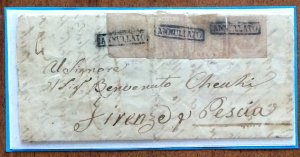 ANNULLATO ANNULLATO ANNULLATO
Al Signore
Sig. Benvenuto Checchi
Firenze p Pescia